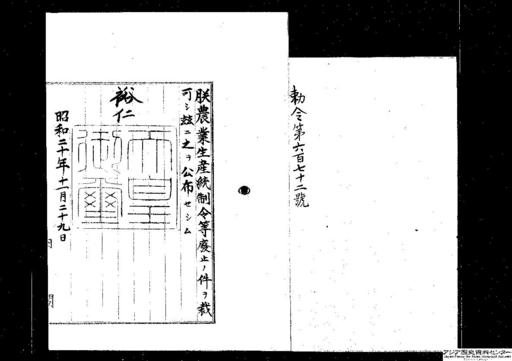 勅令第六百七十二號
朕農業生産統制令等廢止ノ件ヲ裁
可シ玆ニ之ヲ公布セシム
裕仁
天皇御璽
昭和二十年十一月二十九日
アジア歴史資料センター